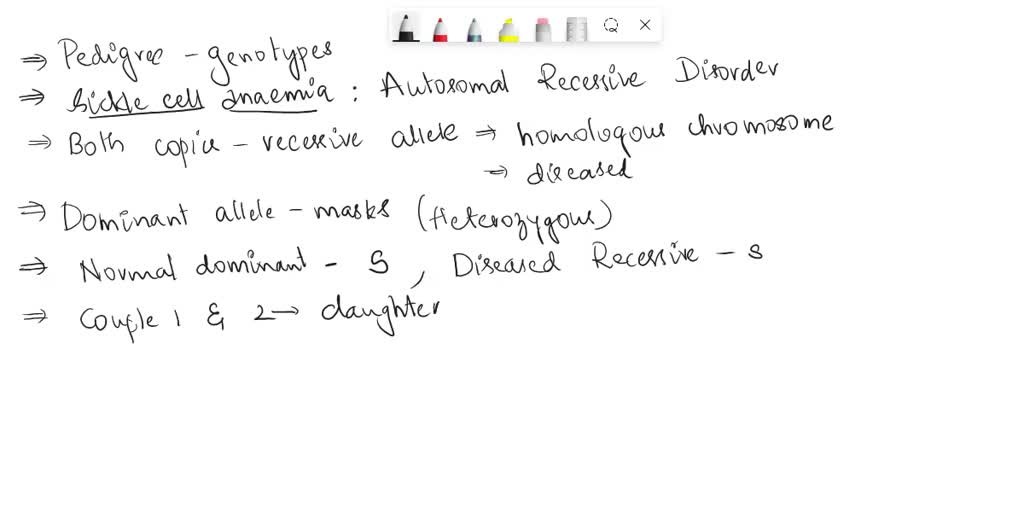 ⇒ Pedigree - genotypes
⇒ Sickle cell anaemia : Autosomal Recessive Disorder
⇒ Both copies - recessive allele ⇒ homologous chromosome
⇒ diseased
⇒ Dominant allele - masks (Heterozygous)
⇒ Normal dominant - S , Diseased Recessive - s
⇒ Couple 1 & 2 → daughter